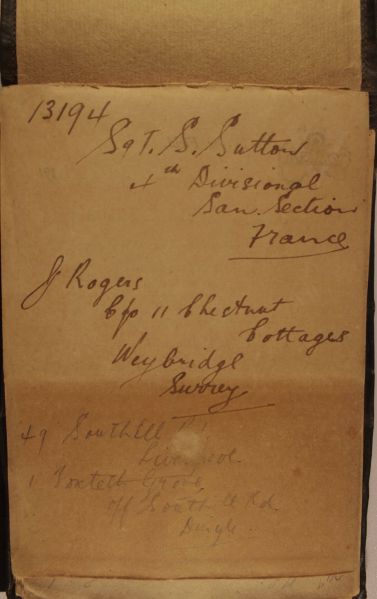 13194
Sgt. S. Sutton
4th Divisional
San. Section
France
J Rogers
C/o 11 Chestnut
Cottages
Weybridge
Surrey
49 Southill Rd
Liverpool
1 Toxteth Grove
off South ll Rd.
Dingle